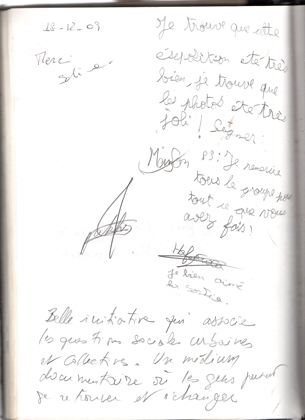 18-12-09
Merci
Je trouve que cette
éxpolition été très
bien, je trouve que
les photos été très
joli ! Signer:
PS: Je remercie
tous le groupe pour
tout ce que vous
avez fais!
je bien aimé
la sortie.
Belle initiative qui associe
les questions sociales urbaines
et collectives. Un médium
documentaire où les gens peuvent
se retrouver et échanger